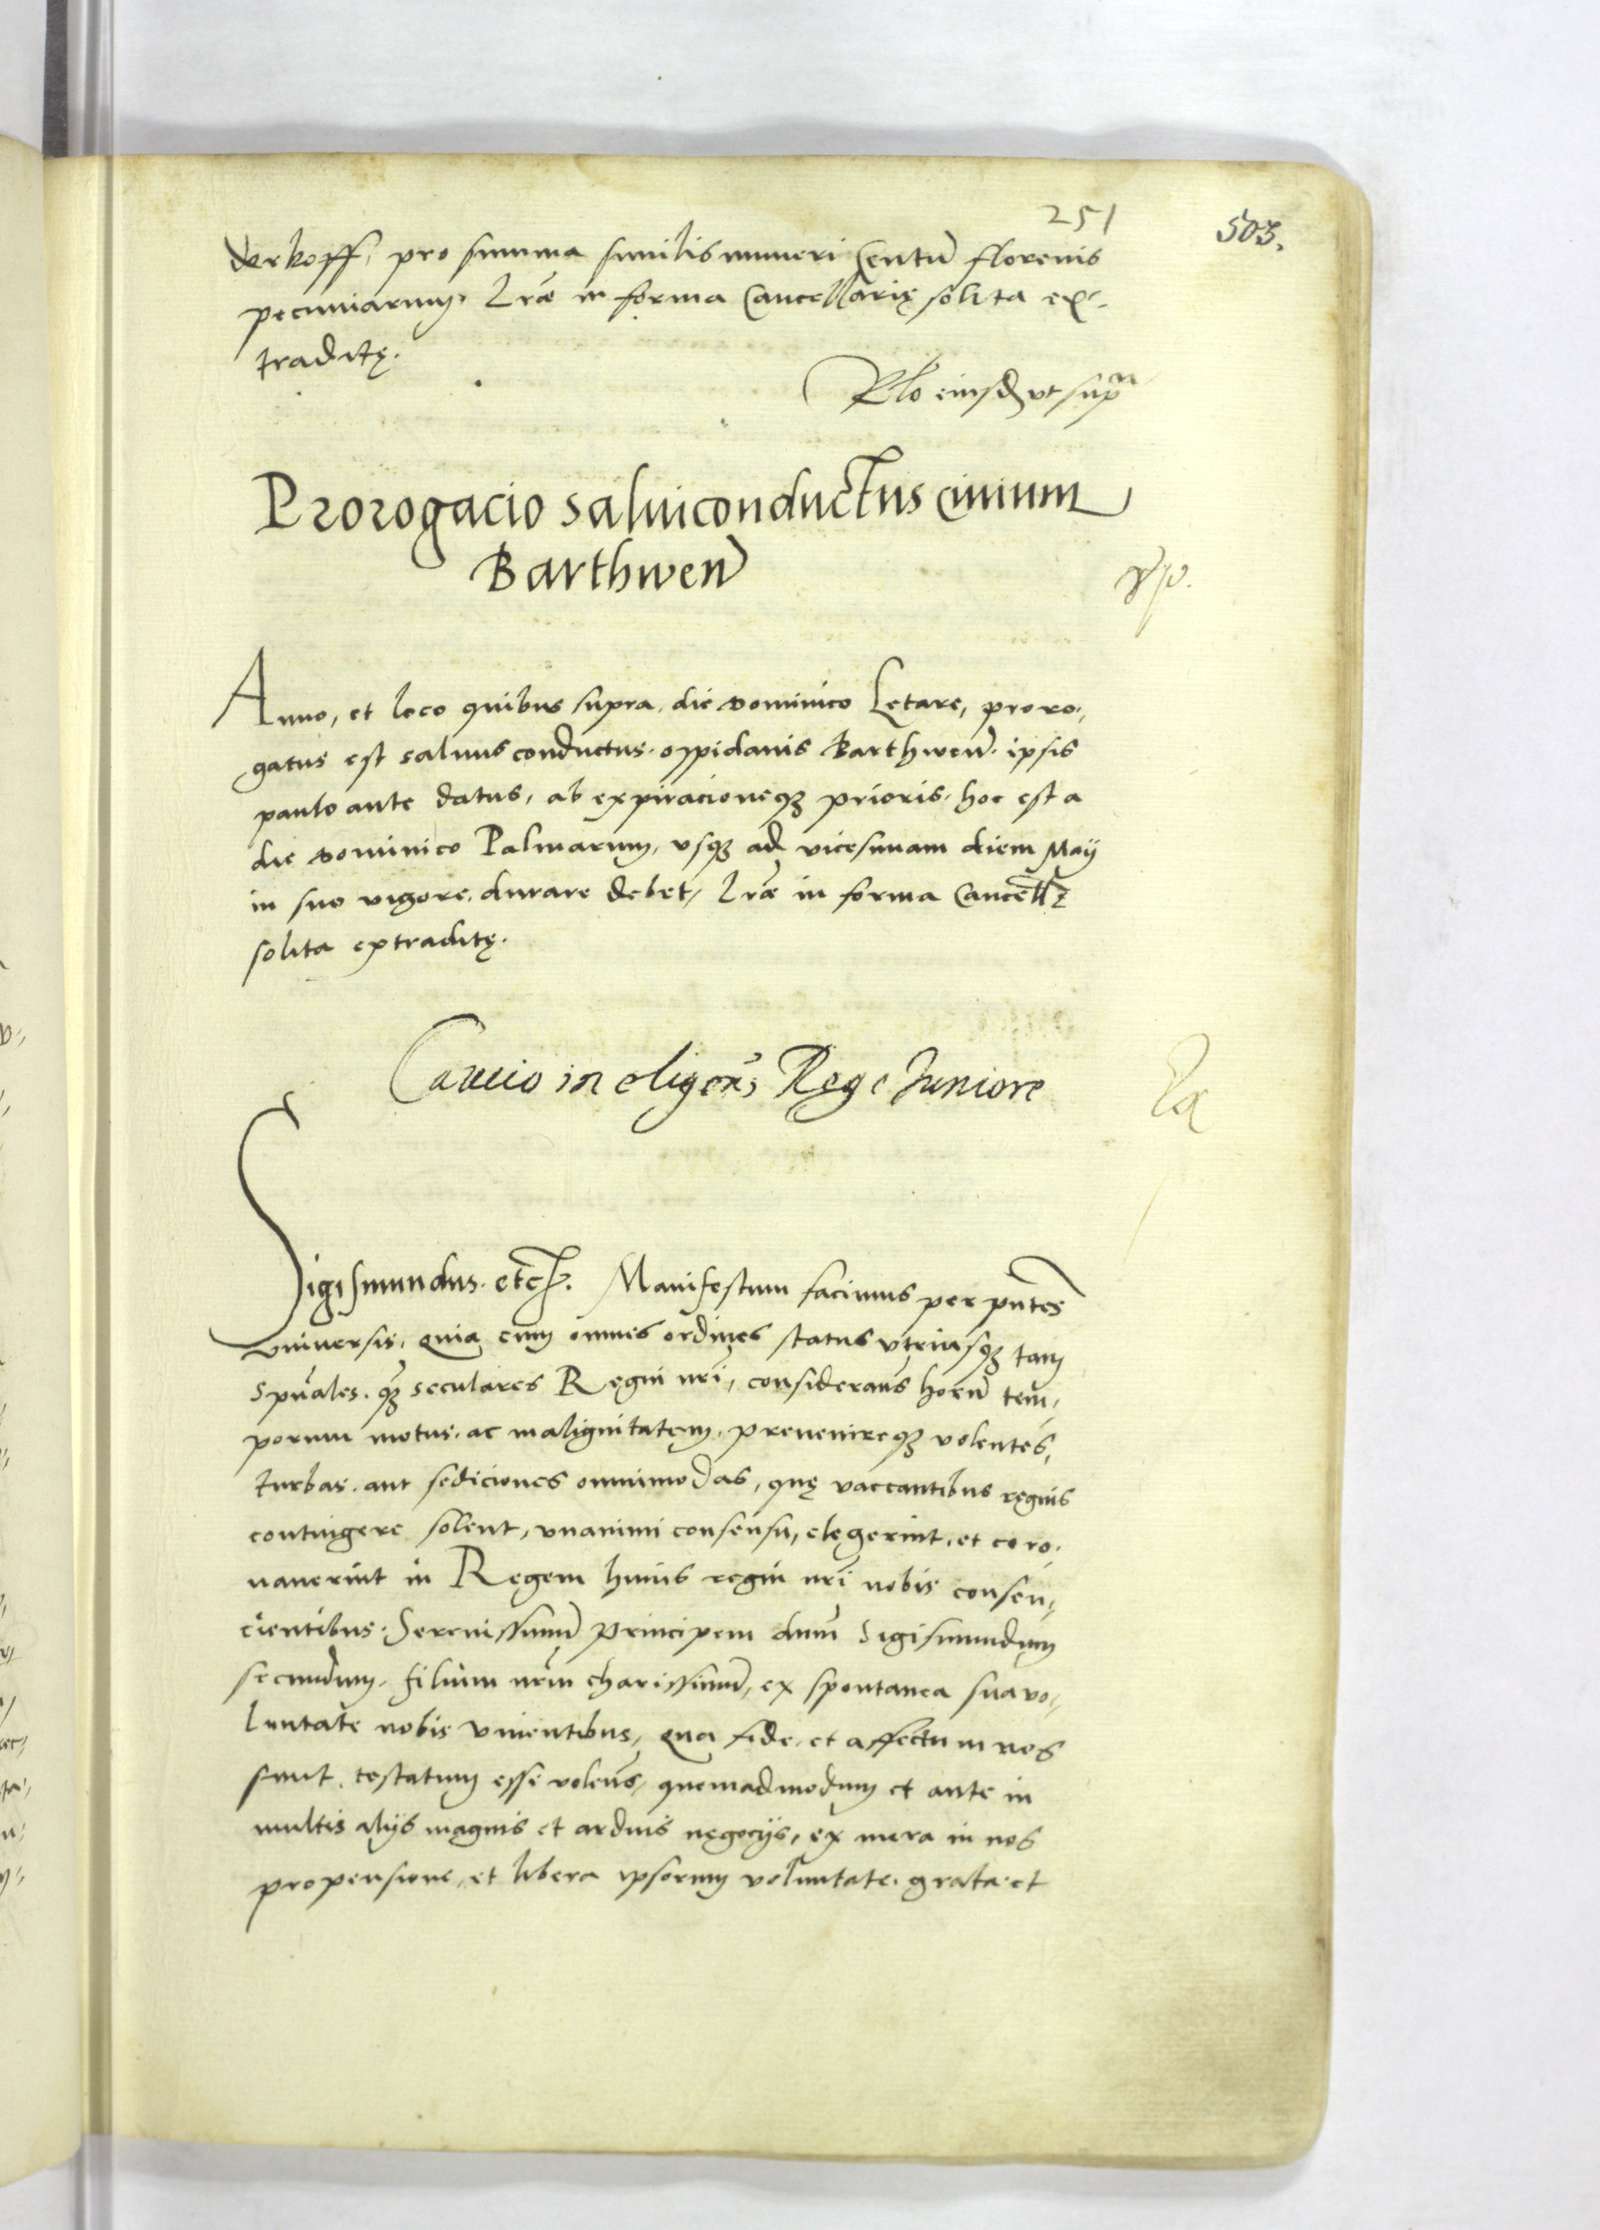 251
503.
derkoff, pro summa similis numeri Centũ florenis
pecuniarum. Lrãe in forma Cancellarię solita ex-
traditę.
Rlo eiusdẽ ut supra
Prorogacio salviconductus civium
Barthwen̄
Anno, et loco quibus supra, die dominico Letare, proro-
gatus est salvus conductus oppidanis Barthwen̄ ipsis
paulo ante datus, ab expiracioneqꝫ prioris, hoc est a
die dominico Palmarum, usqꝫ ad vicesimam diem Maij
in suo vigore durare debet, Lrãe in forma Cancell̃ę
solita extraditę.
Caucio in eligen̄ Rege Iuniore
Sigismundus etc̃. Manifestum facimus per pñtes
Universis, Quia cum omnes ordines status utriusqꝫ tam
spũales q̃ꝫ seculares Regni nr̃i, considerañs horũ tem-
porum motus ac malignitatem, prevenireqꝫ volentes,
turbas aut sediciones omnimodas, quę vaccantibus regnis
contingere solent, unanimi consensu, elegerint, et coro-
naverint in Regem huius regni nr̃i nobis consen-
cientibus Serenissimũ principem dnm̃ Sigismundum
secundum filium nr̃m charissimũ, ex spontanea sua vo-
luntate nobis viventibus, Qua fide et affectu in nos
sint, testatum esse voleñs, quemadmodum et ante in
multis alijs magnis et arduis negocijs, ex mera in nos
propensione, et libera ipsorum voluntate, grata et